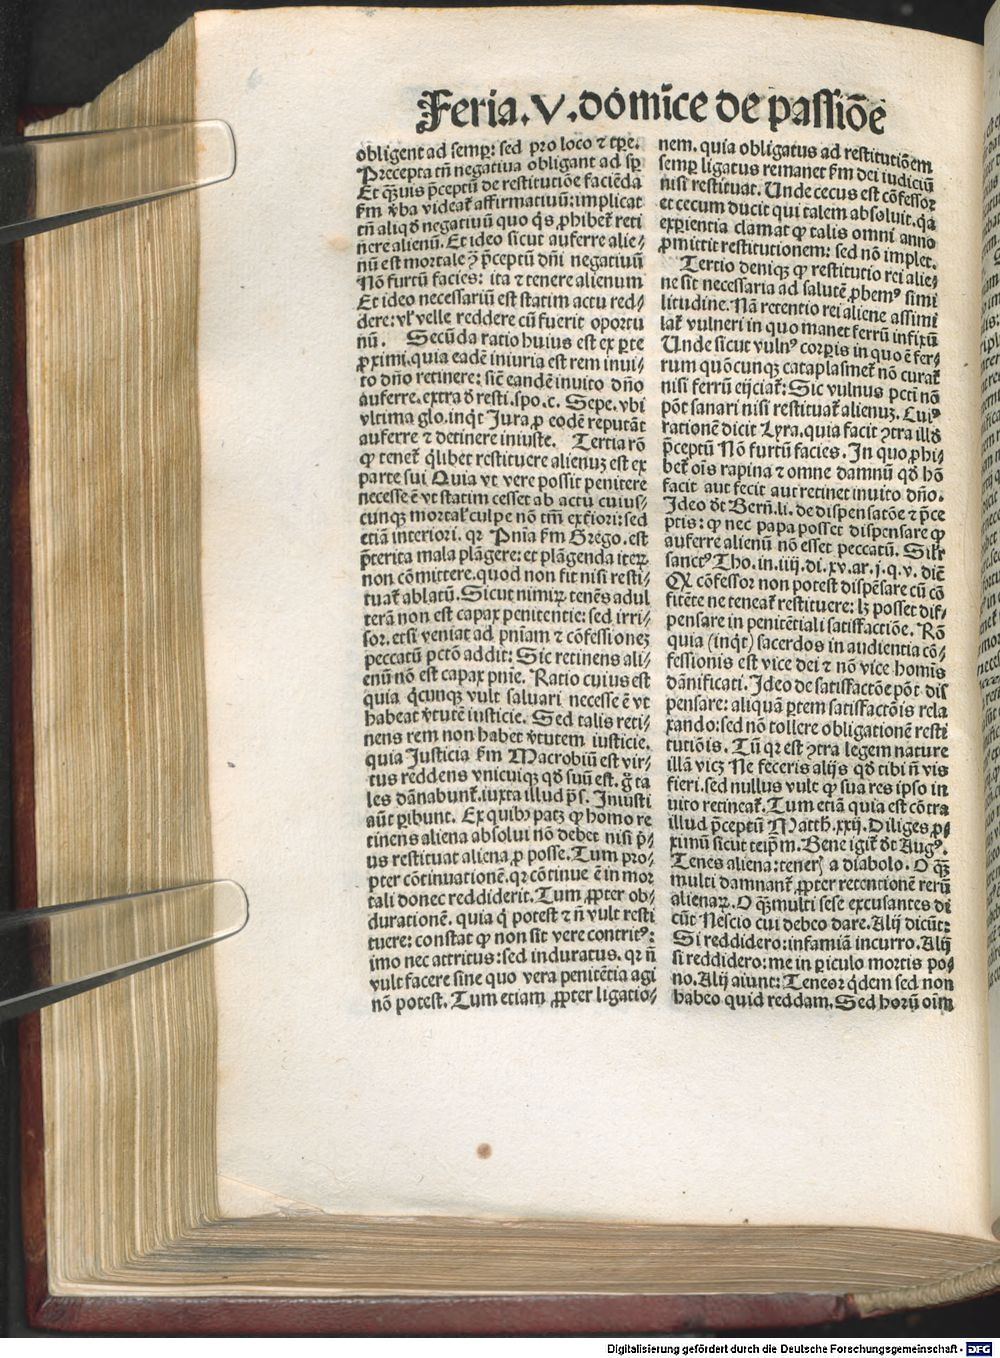 Feria.V.dōmīce de passiōe
obligent ad semꝑ: sed pro loco ⁊ tꝑe.
Precepta tñ negatiua obligant ad sꝑ
Et q̄ꝫuis p̄ceptū de restitutiōe faciēda
ẜm v̓ba videat̄ affirmatiuū: implicat
tñ aliqđ negatiuū quo q̇s ꝓhibet̄ reti
nere alienū. Et ideo sicut auferre alie⸗
nū est mortale ꝯ p̄ceptū dñi negatiuū
Nō furtū facies: ita ⁊ tenere alienum
Et ideo necessariū est statim actu red⸗
dere: vl̓ velle reddere cū fuerit oportu
nū. Secūda ratio huius est ex ꝑte
ꝓximi. quia eadē iniuria est rem inui⸗
to dño retinere: sic̄ eandē inuito dño
auferre. extra đ resti. spo. c. Sepe. vbi
vltima glo. inqͭ Jura ꝓ eodē reputāt
auferre ⁊ detinere iniuste. Tertia rō
ꝙ tenet̄ q̇libet restituere alienuꝫ est ex
parte sui Quia vt vere possit penitere
necesse ē vt statim cesset ab actu cuius⸗
cunqꝫ mortal̓ culpe nō tm̄ exteriori: sed
etiā interiori. qꝛ Pn̄ia ẜm Grego. est
p̄terita mala plāgere: et plāgenda iteꝝ
non cōmittere. quod non fit nisi resti⸗
tuat̄ ablatū. Sicut nimiꝝ tenēs adul
terā non est capax penitentie: sed irri⸗
sor. etsi veniat ad pn̄iam ⁊ cōfessioneꝫ
peccatū pctō addit: Sic retinens ali⸗
enū nō est capax pn̄ie. Ratio cuius est
quia q̇cunqꝫ vult saluari necesse ē vt
habeat v̓tutē iusticie. Sed talis reti⸗
nens rem non habet v̓tutem iusticie.
quia Justicia ẜm Macrobiū est vir⸗
tus reddens vnicuiqꝫ qđ suū est. g̊ ta
les dānabunt̄. iuxta illud ps̄. Iniusti
aūt ꝑibunt. Ex quibꝰ patꝫ ꝙ homo re
tinens aliena absolui nō debet nisi pͥ⸗
us restituat aliena ꝓ posse. Tum pro⸗
pter cōtinuationē. qꝛ cōtinue ē in mor
tali donec reddiderit. Tum ꝓpter ob⸗
durationē. quia q̇ potest ⁊ ñ vult resti
tuere: constat ꝙ non sit vere contritꝰ:
imo nec attritus: sed induratus. qꝛ ñ
vult facere sine quo vera penitētia agi
nō potest. Tum etiam ꝓpter ligatio⸗
nem. quia obligatus ad restitutiōem
semꝑ ligatus remanet ẜm dei iudiciū
nisi restituat. Unde cecus est cōfessor
et cecum ducit qui talem absoluit. qꝛ
exꝑientia clamat ꝙ talis omni anno
ꝓmittit restitutionem: sed nō implet.
Tertio denique ꝙ restitutio rei alie⸗
ne sit necessaria ad salutē ꝓbemꝰ simi
litudine. Nā retentio rei aliene assimi
lat̄ vulneri in quo manet ferrū infixū
Unde sicut vulnꝰ corꝑis in quo ē fer⸗
rum quōcunqꝫ cataplasmet̄ nō curat̄
nisi ferrū eijciat̄: Sic vulnus pctī nō
pōt sanari nisi restituat̄ alienuꝫ. Cuiꝰ
rationē dicit Lyra. quia facit ꝯtra illđ
p̄ceptū Nō furtū facies. In quo ꝓhi⸗
bet̄ oīs rapina ⁊ omne damnū qđ hō
facit aut fecit aut retinet inuito dño.
Ideo dt̄ Berñ. li. de dispensatōe ⁊ p̄ce
ptis: ꝙ nec papa posset dispensare ꝙ
auferre alienū nō esset peccatū. Silr̄
sanctꝰ Tho. in. iiij. di. xv. ar. j. q. v. dic̄
Qꝙ cōfessor non potest dispēsare cū cō
fitēte ne teneat̄ restituere: lꝫ posset dis⸗
pensare in penitētiali satisfactiōe. Rō
quia (inqͭ) sacerdos in audientia cō⸗
fessionis est vice dei ⁊ nō vice homīs
dānificati. Ideo de satisfactōe pōt dis
pensare: aliquā ꝑtem satisfactōis rela
xando: sed nō tollere obligationē resti
tutiōis. Tū qꝛ est ꝯtra legem nature
illā vicꝫ Ne feceris alijs qđ tibi ñ vis
fieri. sed nullus vult ꝙ sua res ipso in
uito retineat̄. Tum etiā quia est cōtra
illud p̄ceptū Matth. xxij. Diliges ꝓ⸗
ximū sicut teip̄m. Bene igit̄ dt̄ Augꝰ.
Tenes aliena: teneris a diabolo. O q̄ꝫ
multi damnant̄ ꝓpter retentionē rerū
alienaꝝ. O q̄ꝫ multi sese excusantes di
cūt Nescio cui debeo dare. Alij dicūt:
Si reddidero: infamiā incurro. Alij
si reddidero: me in ꝑiculo mortis po⸗
no. Alij aiunt: Teneor q̇dem sed non
habeo quid reddam. Sed horū oīm
Digitalisierung gefördert durch die Deutsche Forschungsgemeinschaft - DFG